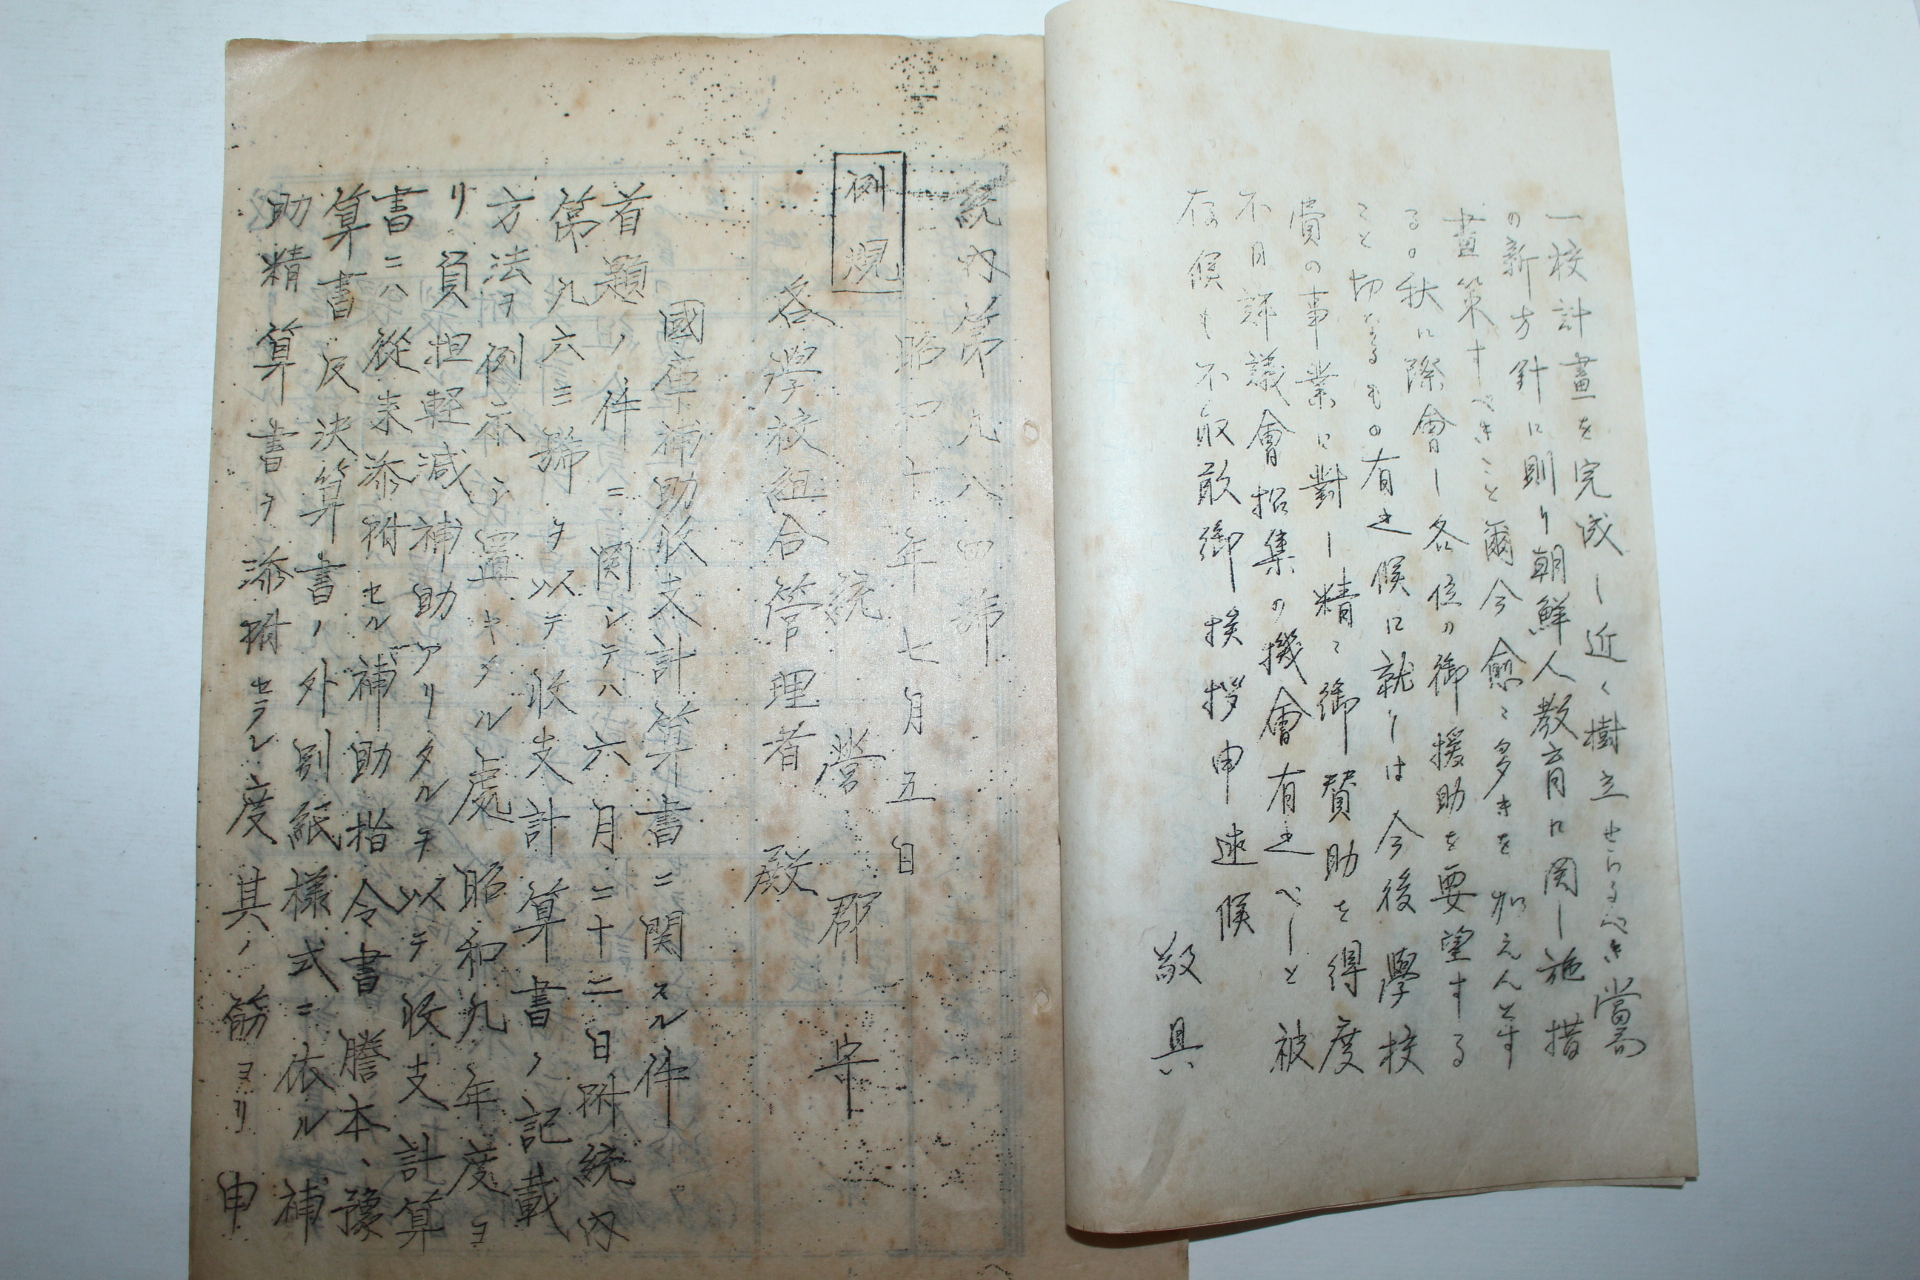 一校計畫を完成し近く樹立せらるべき當局
の新方針に則り朝鮮人教育に関し施措
畫策すべきこと爾今愈〻多きを加えんとす
る。秋に際會し各位の御援助を要望する
こと切なるもの有之候に就しは今後學校
費の事業に對し精〻御賛助を得度
不日評議會招集の機會有之べしと被
存候も不取敢御挨拶申述候
敬具
統内第九八四號
昭和十年七月五日
例規
統營郡守
各學校組合管理者殿
國庫補助收支計算書ニ関スル件
首題ノ件ニ関シテハ六月二十二日附統内
第九六三號ヲ以テ收支計算書ノ記載
方法ヲ例示シ置キタル處昭和九年度ヨ
リ負担軽減補助アリタルヲ以テ收支計算
書ニハ從来添附セル補助指令書謄本、豫
算書及決算書ノ外別紙様式ニ依ル補
助精算書ヲ添附セラレ度其ノ筋ヨリ申